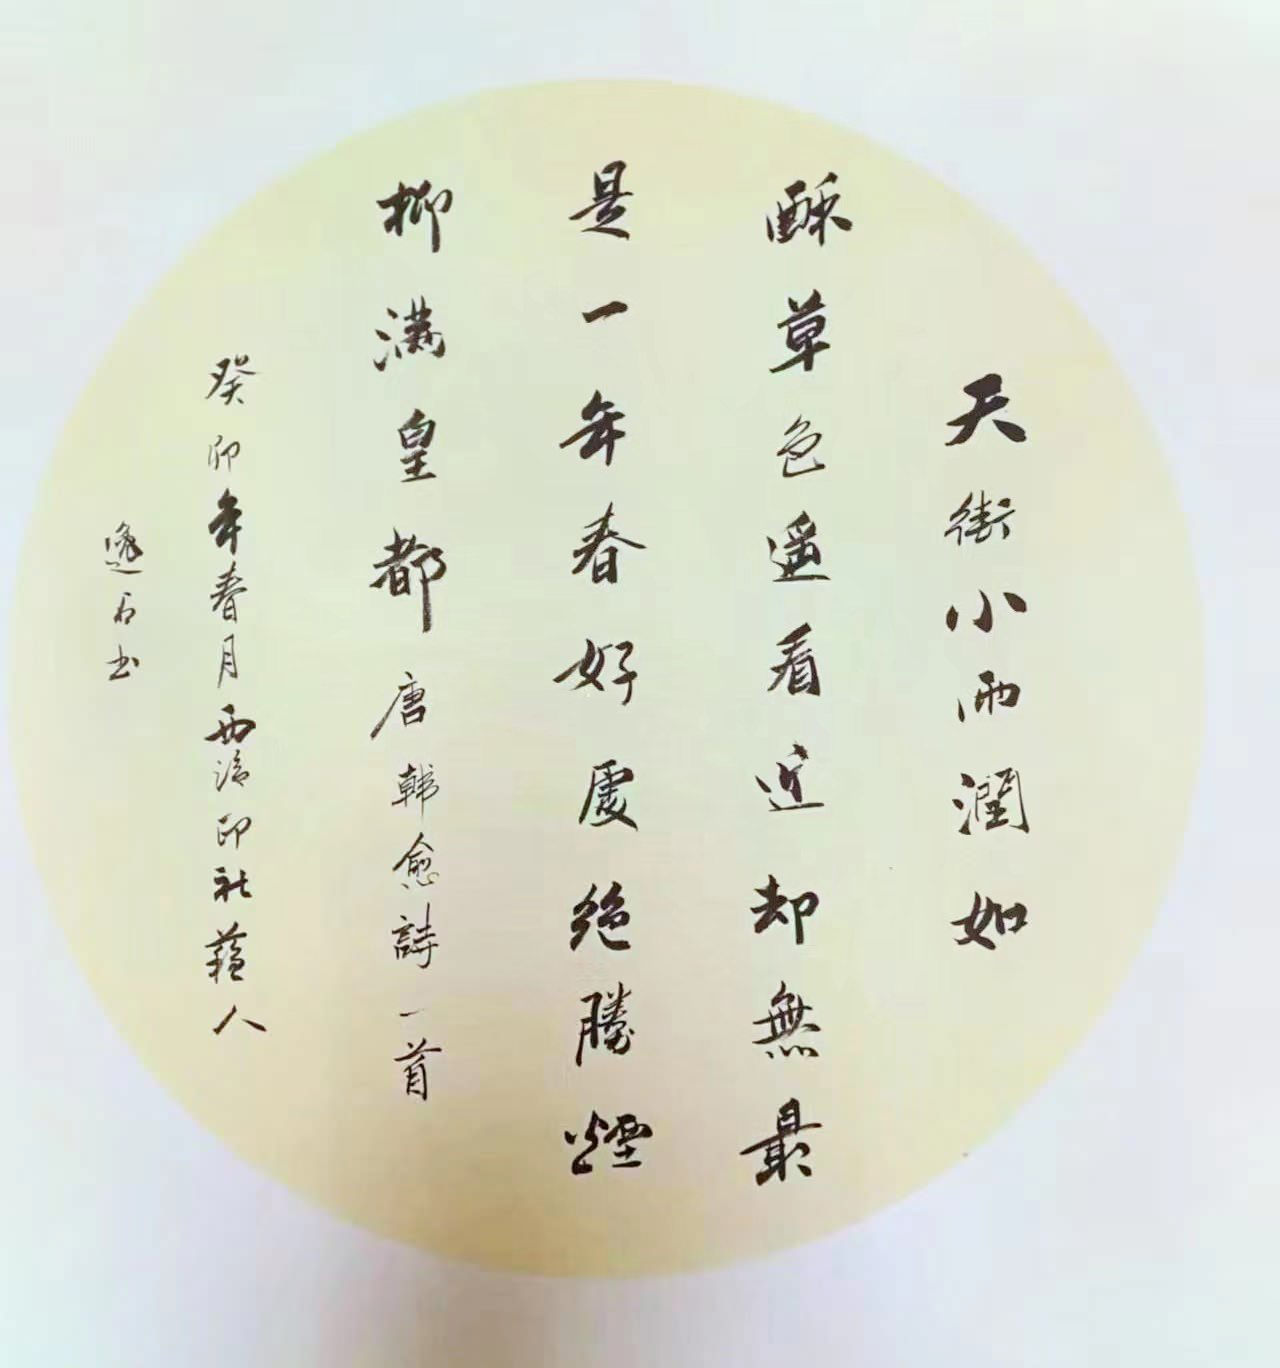 天街小雨潤如
酥草色遥看近却無最
是一年春好處絕勝煙
柳滿皇都唐韓愈詩一首
癸卯年春月西泠印社藝人
逸石书